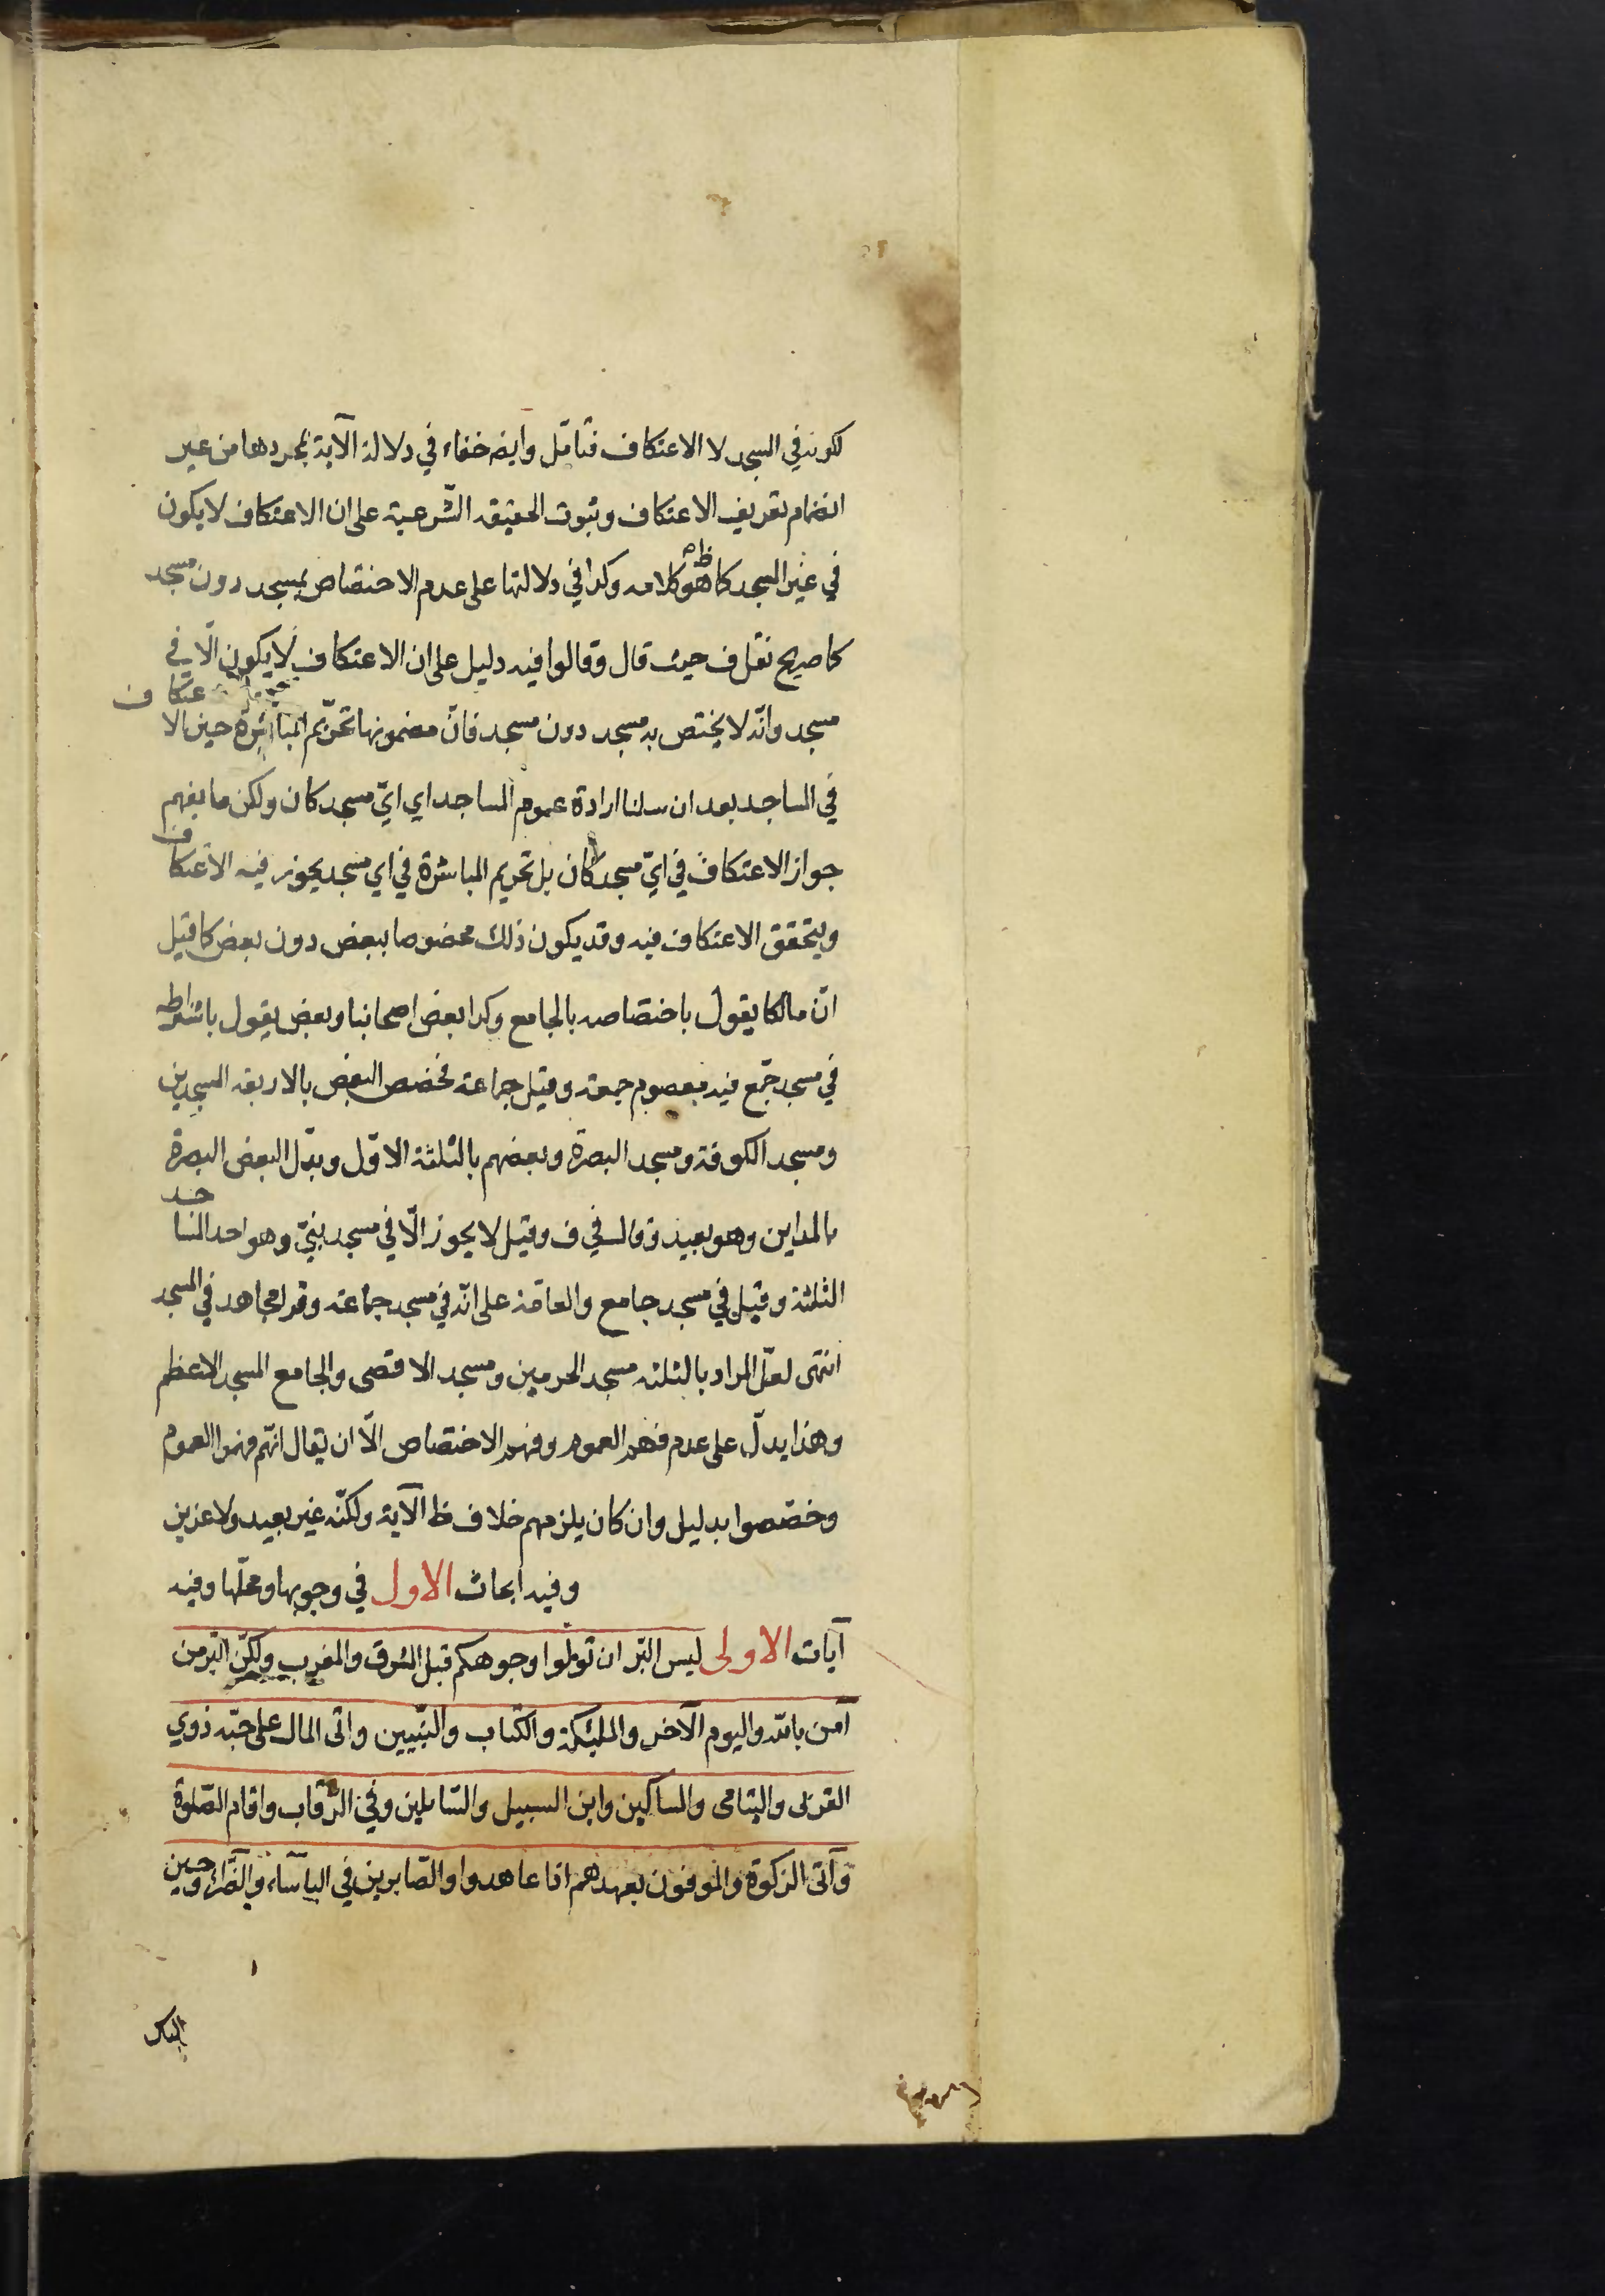 لكونه في المسجد لا الاعتكاف فتأمّل وايض خفاء في دلالة الآية بمجردها من غير
انضمام تعريف الاعتكاف وثبوت الحقيقة الشّرعية على ان الاعتكاف لا يكون
في غير المسجد كما هو ظاهر كلامه وكذا في دلالتها على عدم الاختصاص بمسجد دون مسجد
كما صريح نقل ف حيث قال وقالوا فيه دليل على ان الاعتكاف لا يكون الّا في
مسجد وانّه لا يختص به مسجد دون مسجد فانّ مضمونها تحريم المباشرة حين الاعتكاف
في المساجد بعد ان سلمنا ارادة عموم المساجد اي ايّ مسجد كان ولكن ما يفهم
جواز الاعتكاف في ايّ مسجد كان بل تحريم المباشرة في اي مسجد يجوز فيه الاعتكاف
ويتحقق الاعتكاف فيه وقد يكون ذلك مخصوصا ببعض دون بعض كما قيل
انّ مالكا يقول باختصاصه بالجامع وكذا بعض اصحابنا وبعض يقول باشتراطه
في مسجد جمّع فيه معصوم جمعة وقيل جماعة فخصص البعض بالاربعة المسجدين
ومسجد الكوفة ومسجد البصرة وبعضهم بالثلثة الاوّل وبدّل البعض البصرة
بالمداين وهو بعيد وقال في ف وقيل لا يجوز الّا في مسجد نبيّ وهو احد المساجد
الثلثة وقيل في مسجد جامع والعامّة على انّه في مسجد جماعة وقرا مجاهد في المسجد
انتهى لعلّ المراد بالثلثه مسجد الحرمين ومسجد الاقصى والجامع المسجد الاعظم
وهذا يدلّ على عدم فهم العموم وفهم الاختصاص الّا ان يقال انّهم فهموا العموم
وخصّصوا بدليل وان كان يلزمهم خلاف ظ الآية ولكنّه غير بعيد ولا عزيز
وفيه ابحاث الاول في وجوبها ومحلّها وفيه
آيات الاولى ليس البّر ان تولّوا وجوهكم قبل المشرق والمغرب ولكنّ البّر من
آمن بالله واليوم الآخر والملئكة والكتاب والنّبيين واتى المال على حبّه ذوي
القربى واليتامى والمساكين وابن السبيل والسّايلين وفي الرّقاب واقام الصّلوة
وآتى الزكوة والموفون بعهدهم اذا عاهدوا والصّابرين في البأسآء والضّرآء وحين
الباس